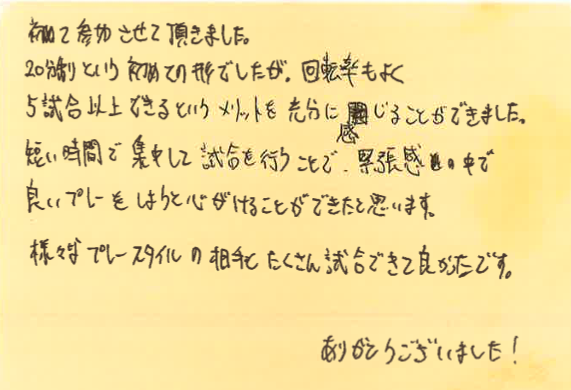 初めて参加させて頂きました。
20分割りという初めての形でしたが、回転率もよく
5試合以上できるというメリットを充分に感じることができました。
短い時間で集中して試合を行うことで、緊張感の中で
良いプレーをしようと心がけることができたと思います。
様々なプレースタイルの相手とたくさん試合できて良かたです。
ありがとうございました!